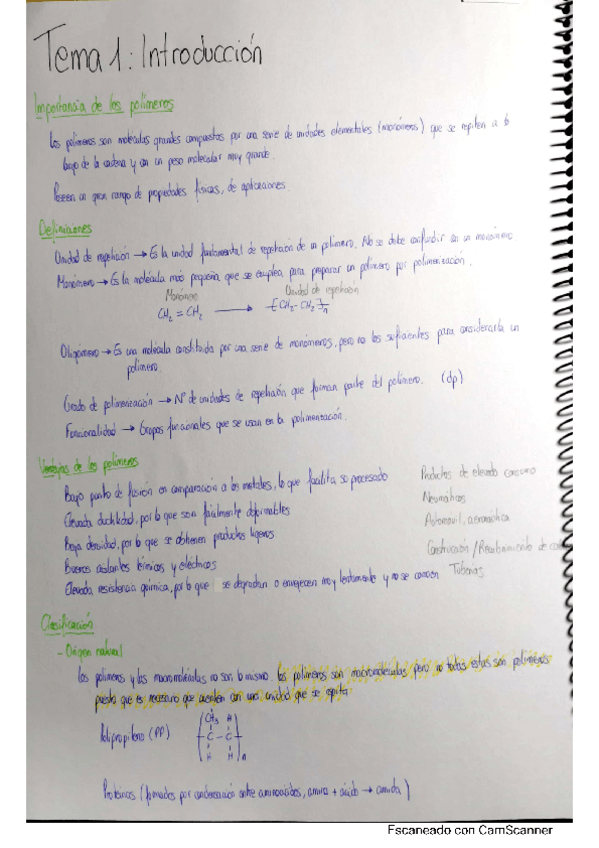 Tema 1: Introducción
Importancia de los polímeros
Los polímeros son moléculas grandes compuestas por una serie de unidades elementales (monómeros) que se repiten a lo
largo de la cadena y con un peso molecular muy grande.
Poseen un gran rango de propiedades físicas, de aplicaciones.
Definiciones
Unidad de repetición → Es la unidad fundamental de repetición de un polímero. No se debe confundir con un monómero
Monómero → Es la molécula más pequeña, que se emplea para preparar un polímero por polimerización.
Monómero Unidad de repetición
CH2 = CH2 → [CH2-CH2]n
Oligómero → Es una molécula constituida por una serie de monómeros, pero no los suficientes para considerarla un
polímero.
Grado de polimerización → Nº de unidades de repetición que forman parte del polímero. (dp)
Funcionalidad → Grupos funcionales que se usan en la polimerización.
Ventajas de los polímeros
Bajo punto de fusión en comparación a los metales, lo que facilita su procesado Productos de elevado consumo
Elevada ductilidad, por lo que son fácilmente deformables Neumáticos
Baja densidad, por lo que se obtienen productos ligeros Automóvil, aeronáutica
Buenos aislantes térmicos y eléctricos Construcción / Recubrimiento de
Elevada resistencia química, por lo que se degradan o envejecen muy lentamente y no se corroen Tuberías
Clasificación
- Origen natural
Los polímeros y las macromoléculas no son lo mismo. Los polímeros son macromoléculas, pero no todas estas son polímeros
puesto que es necesario que cuenten con una unidad que se repita.
Polipropileno (PP)
CH3 H
C - C
H H n
Proteínas (formadas por condensación entre aminoácidos, amina + ácido → amida)
Escaneado con CamScanner